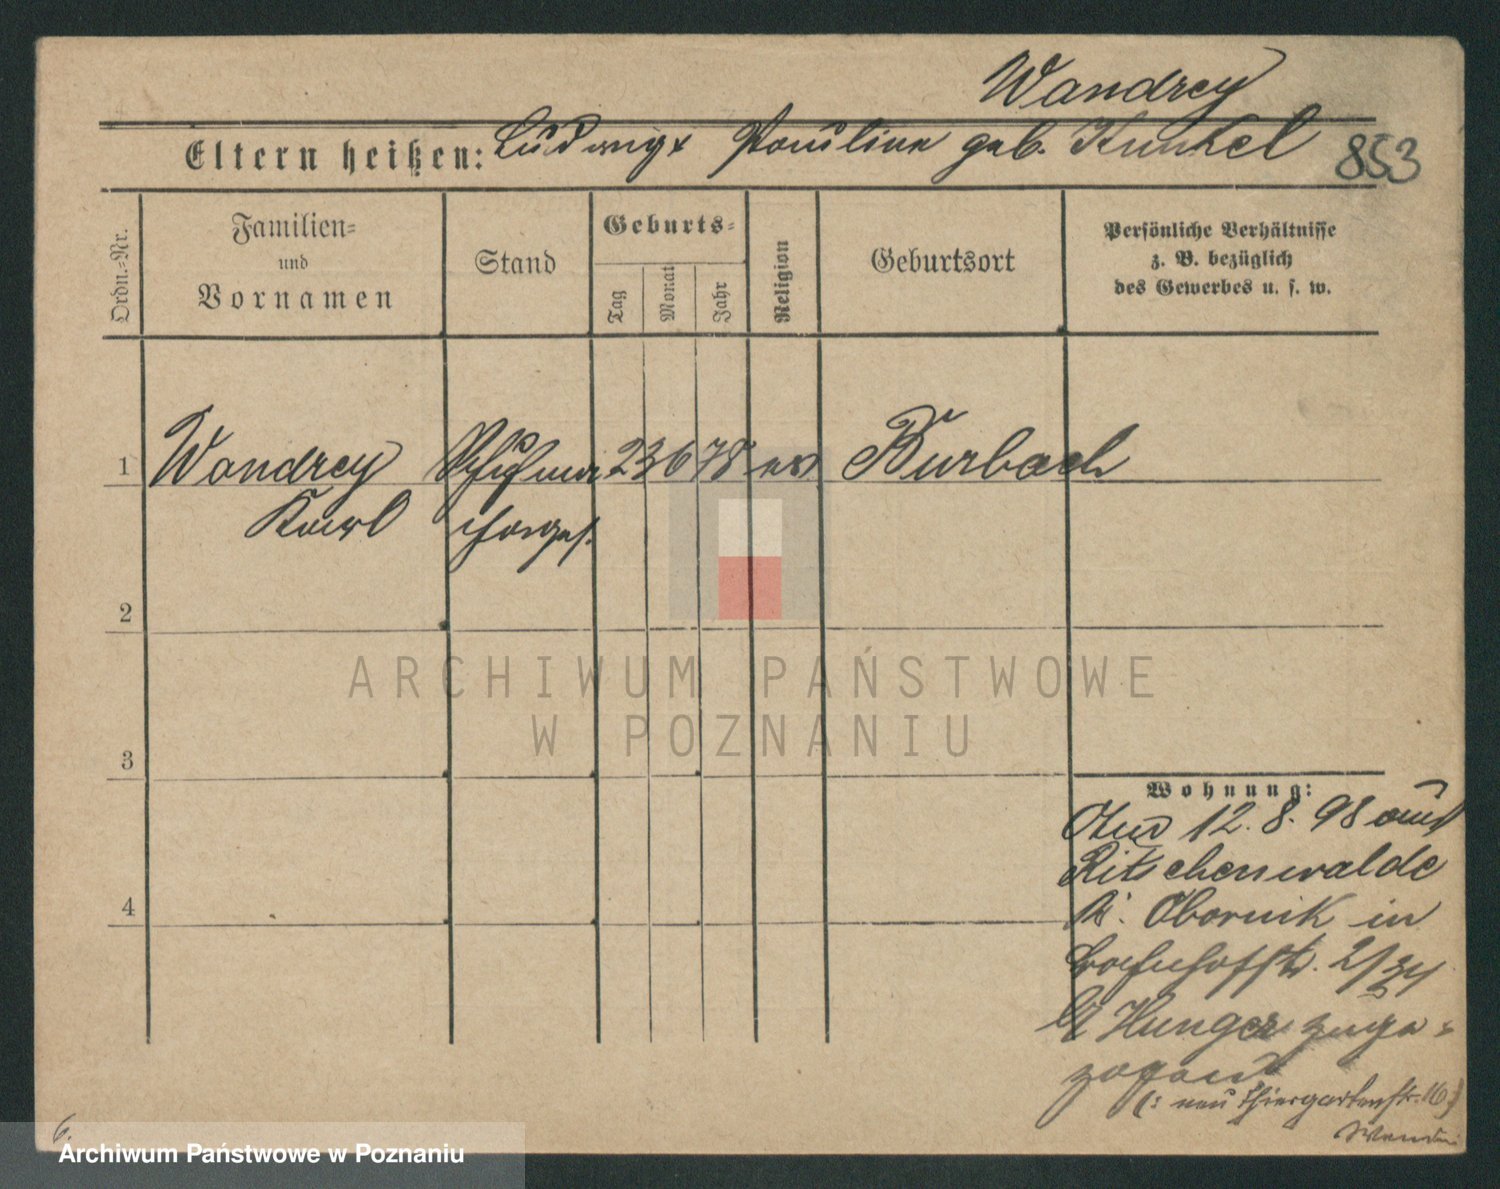 Wandrey
Eltern heißen: Ludwig x Pauline geb. Kunkel
853
Ordn.-Nr.
Familien-
und
Vornamen
Stand
Geburts-
Tag
Monat
Jahr
Religion
Geburtsort
Persönliche Verhältnisse
z. B. bezüglich
des Gewerbes u. s. w.
1 Wandrey Schuhma 23 6 78 ev Burbach
Karl chergs.
2
3
4
Wohnung:
12. 8. 98 aus
Ritschenwalde
Kr. Obornik in
Bahnhofstr. 2/3
b/ Hunger zuge-
zogen
(: neu Thiergartenstr. 16 :)
6.
ARCHIWUM PAŃSTWOWE
W POZNANIU
Archiwum Państwowe w Poznaniu